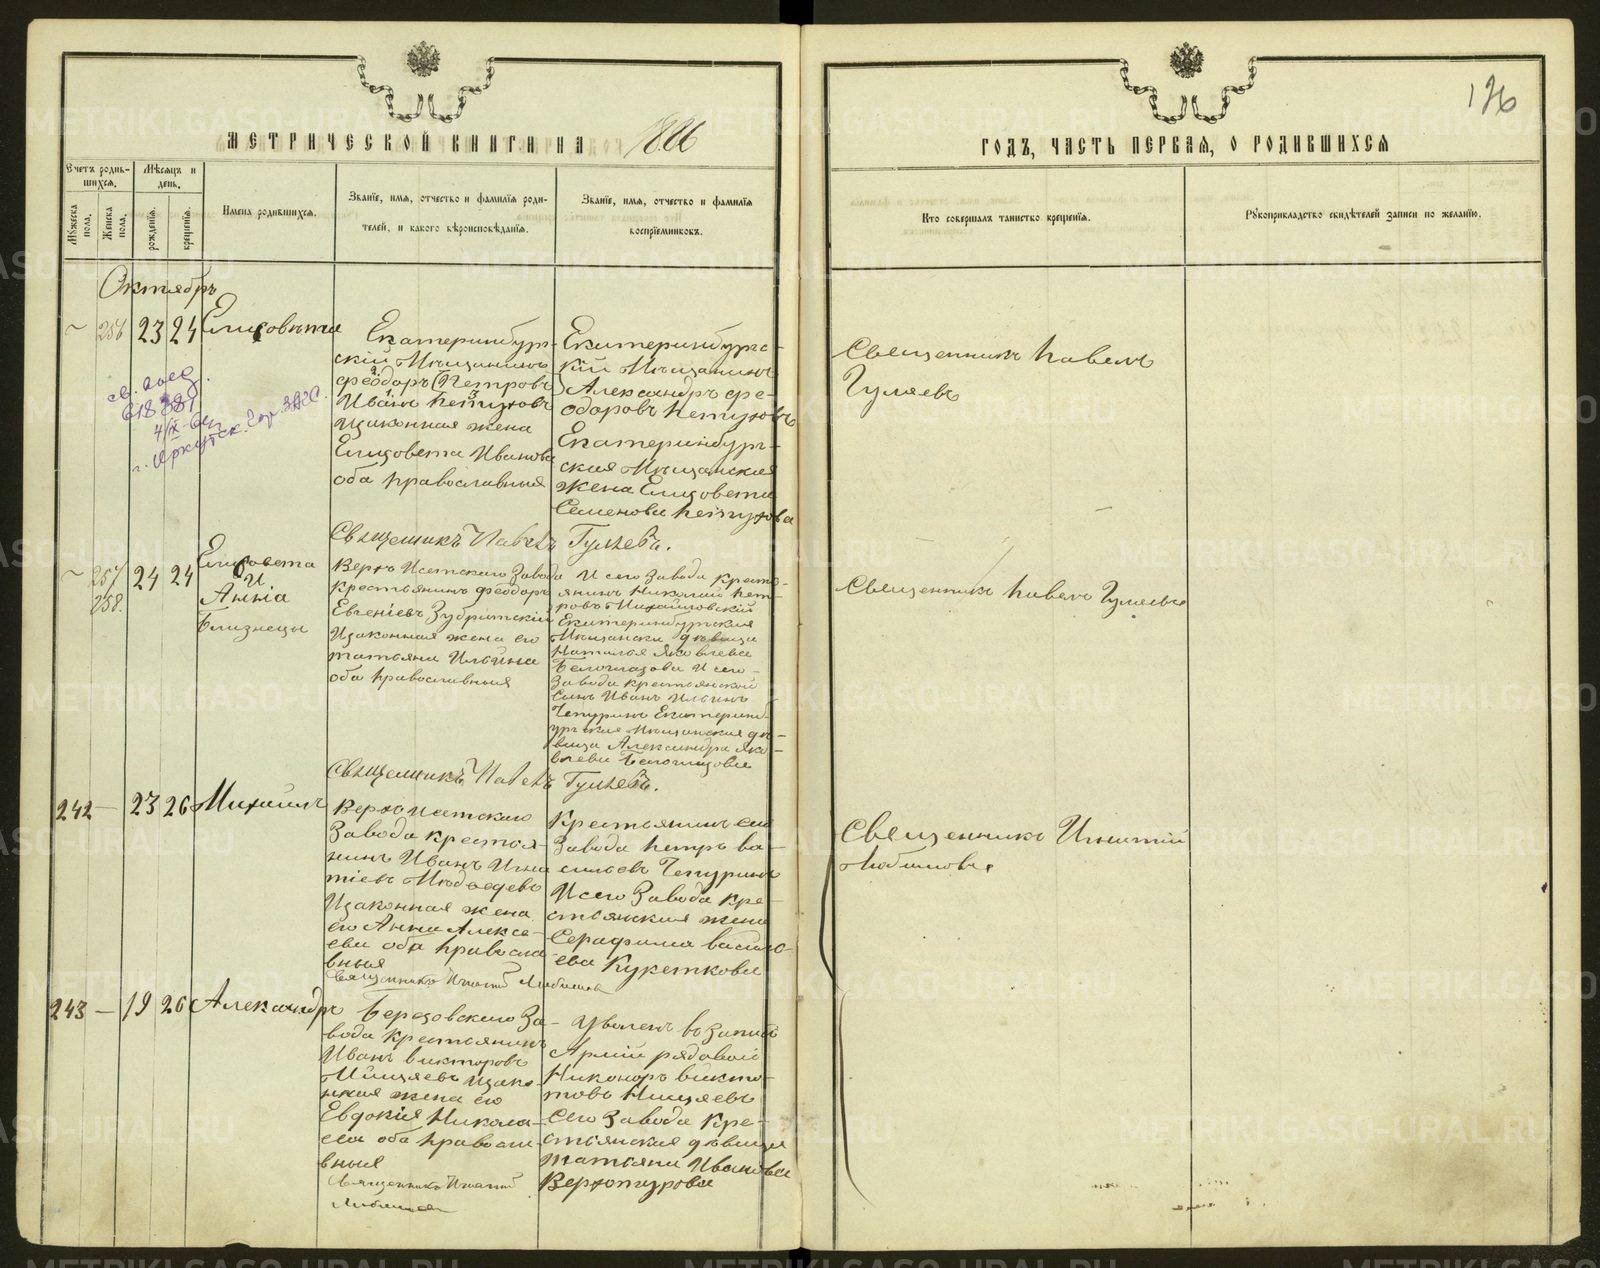 126
МЕТРИЧЕСКОЙ КНИГИ НА
ГОДЪ, ЧАСТЬ ПЕРВАЯ, О РОДИВШИХСЯ
Счетъ родив-
шихся.
Мѣсяцъ и
день.
Мужеска
пола.
Женска
пола.
рожденія.
крещенія.
Имена родившихся.
Званіе, имя, отчество и фамилія роди-
телей, и какого вѣроисповѣданія.
Званіе, имя, отчество и фамилія
воспріемниковъ.
Кто совершалъ таинство крещенія.
Рукоприкладство свидѣтелей записи по желанію.
Октябрь
256 23 24 Елисовета
Екатеринбург-
скій Мѣщанинъ
Феодоръ Петровъ
Иванъ Петуховъ
Изаконная жена
Елизовета Иванова
оба православныя
Екатеринбургс-
кій Мѣщанинъ
Александръ Фе-
одоровъ Петуховъ
Екатеринбург-
ская Мѣщанская
жена Елизовета
Семенова Петухова
Священникъ Павелъ
Гуляевъ
св. дано
618881
4/IX-64
г. Иркутск. Гор. ЗАГС.
Священникъ Павелъ Гуляевъ.
257
258.
24 24
Елисовета
И
Анніа
Близнецы
Верхъ Исетскаго Завода
Крестьянинъ Феодоръ
Евгеніевъ Зубритскій
Изаконная жена его
татьяна Ильина
оба православныя
И сего Завода Кресть-
янинъ Николай Пет-
ровъ Михайловскій
Екатеринбургская
Мѣщанска дѣвица
Наталья Яковлева
Белоглазова И сего
Завода крестьянской
Сынъ Иванъ Ильинъ
Чепуринъ Екатеринб-
ургская Мѣщанская дѣ-
вица Александра Яко-
влева Белоглазова
Священникъ Павелъ Гуляевъ
Священникъ Павелъ Гуляевъ.
242 — 23 26 Михаилъ
Верхъ Исетскаго
Завода крестья-
нинъ Иванъ Игна
тіевъ Медведевъ
Изаконная жена
его Анна Алексе-
ева оба правосла
вныя
Крестьянинъ сего
Завода Петръ Ва-
сильевъ Чепуринъ
И сего Завода Кре-
стьянская жена
Серафима Василь-
ева Кукеткова
Священникъ Игнатій
Любимовъ
Священникъ Игнатій Любимовъ
243 — 19 26 Александръ
Березовскаго За-
вода крестьянинъ
Иванъ Викторовъ
изако-
нная жена его
Евдокія Никола-
ева оба правосла-
вныя
Уволенъ въ Запасъ
Арміи рядовой
Никоноръ Викто-
Сего Завода Кре-
стьянская дѣвица
татьяна Иванова
Верхотурова
Священникъ Игнатій
Любимовъ